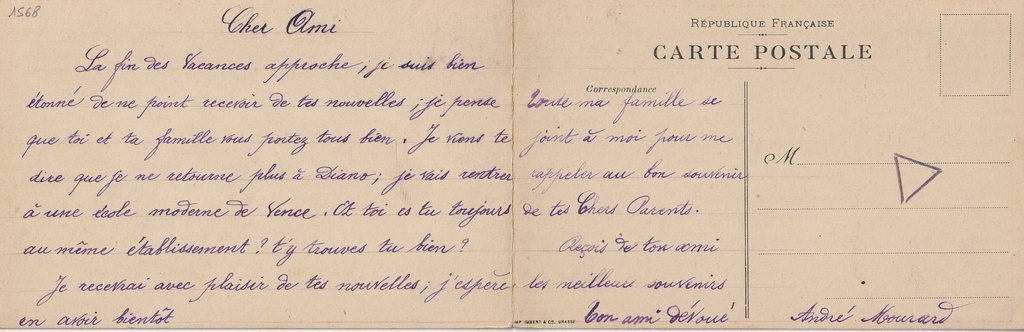 1568
Cher Ami
La fin des Vacances approche, je suis bien
étonné de ne point recevoir de tes nouvelles ; je pense
que toi et ta famille vous portez tous bien. Je viens te
dire que je ne retourne plus à Diano ; je vais rentrer
à une école moderne de Vence. Et toi es tu toujours
au même établissement ? t'y trouves tu bien ?
Je recevrai avec plaisir de tes nouvelles ; j'espère
en avoir bientôt
RÉPUBLIQUE FRANÇAISE
CARTE POSTALE
Correspondance
Toute ma famille se
joint à moi pour me
rappeler au bon souvenir
de tes Chers Parents.
Reçois de ton ami
les meilleurs souvenirs
Ton ami dévoué
André Mourard
M
IMP. IMBERT & CIE, GRASSE